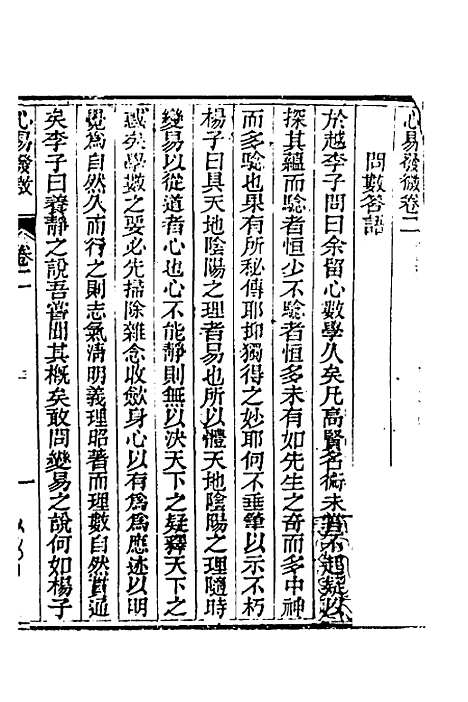 心易發微卷二
問數答語
於越李子問曰余留心數學久矣凡高賢名術未嘗不起疑以
探其蘊而驗者恒少不驗者恒多未有如先生之奇而多中神
而多驗也果有所秘傳耶抑獨得之妙耶何不垂肇以示不朽
楊子曰具天地陰陽之理者易也所以體天地陰陽之理隨時
變易以從道者心也心不能靜則無以決天下之疑釋天下之
惑矣學數之要必先掃除雜念收歛身心以有為為應迹以明
覺為自然久而行之則志氣淸明義理昭著而理數自然貫通
矣李子曰養靜之說吾嘗聞其概矣敢問變易之說何如楊子
心易發微 卷二 一